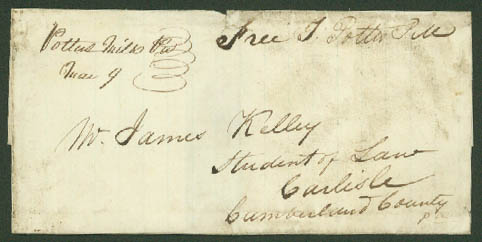 Potters Mills Pa
Mar 9
Free J. Potter P.M
Mr. James Kelley
Student of Law
Carlisle
Cumberland County
P